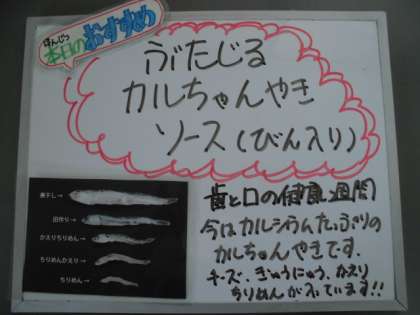 ほんじつ
本日のおすすめ
ぶたじる
カルちゃんやき
ソース(びん入り)
煮干し→
田作り→
かえりちりめん→
ちりめんかえり→
ちりめん→
歯と口の健康週間
今はカルシウムたっぷりの
カルちゃんやきです.
チーズ、ぎゅうにゅう、かえり
ちりめんが入っています!!